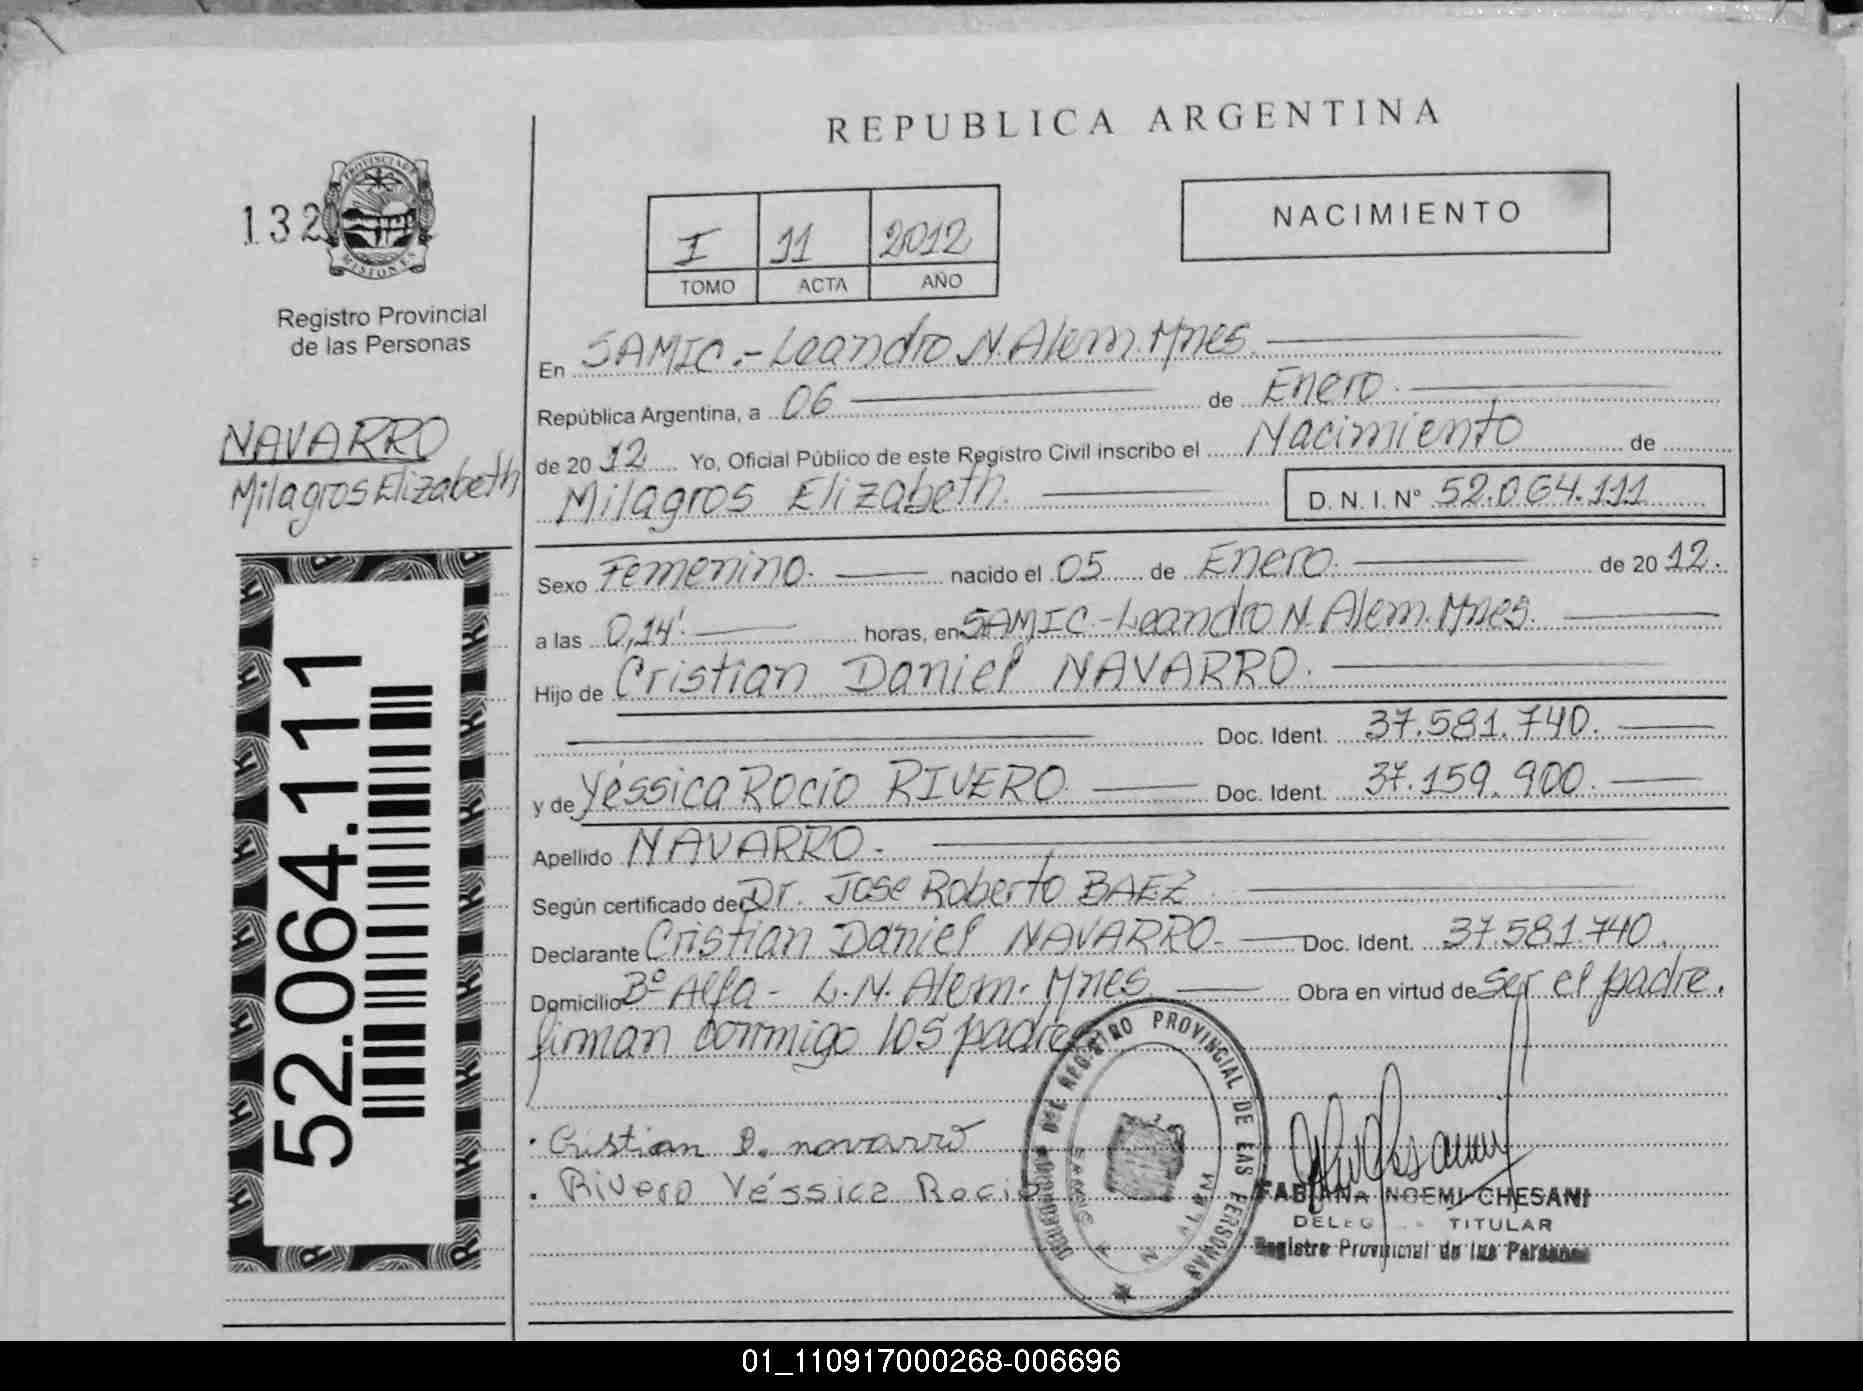 REPUBLICA ARGENTINA
132
PROVINCIA DE MISIONES
Registro Provincial
de las Personas
I 11 2012
TOMO ACTA AÑO
NACIMIENTO
NAVARRO
Milagros Elizabeth
52.064.111
En SAMIC.- Leandro N. Alem. Mnes.
República Argentina, a 06 de Enero.
de 20 12 Yo, Oficial Público de este Registro Civil inscribo el Nacimiento de
Milagros Elizabeth. D. N. I. Nº 52.064.111
Sexo Femenino. nacido el 05 de Enero. de 20 12.
a las 0,14'. horas, en SAMIC - Leandro N. Alem. Mnes.
Hijo de Cristian Daniel NAVARRO.
Doc. Ident. 37.581.740.
y de Yéssica Rocío RIVERO Doc. Ident. 37.159.900.
Apellido NAVARRO.
Según certificado de Dr. Jose Roberto BAEZ
Declarante Cristian Daniel NAVARRO. Doc. Ident. 37.581.740
Domicilio Bº Alfa - L.N. Alem. Mnes Obra en virtud de ser el padre.
firman conmigo los padres
Cristian D. navarro
Rivero Yéssica Rocio
DEL REGISTRO PROVINCIAL DE LAS PERSONAS
FABIANA NOEMI CHESANI
TITULAR
Registro Provincial de las Personas
01_110917000268-006696